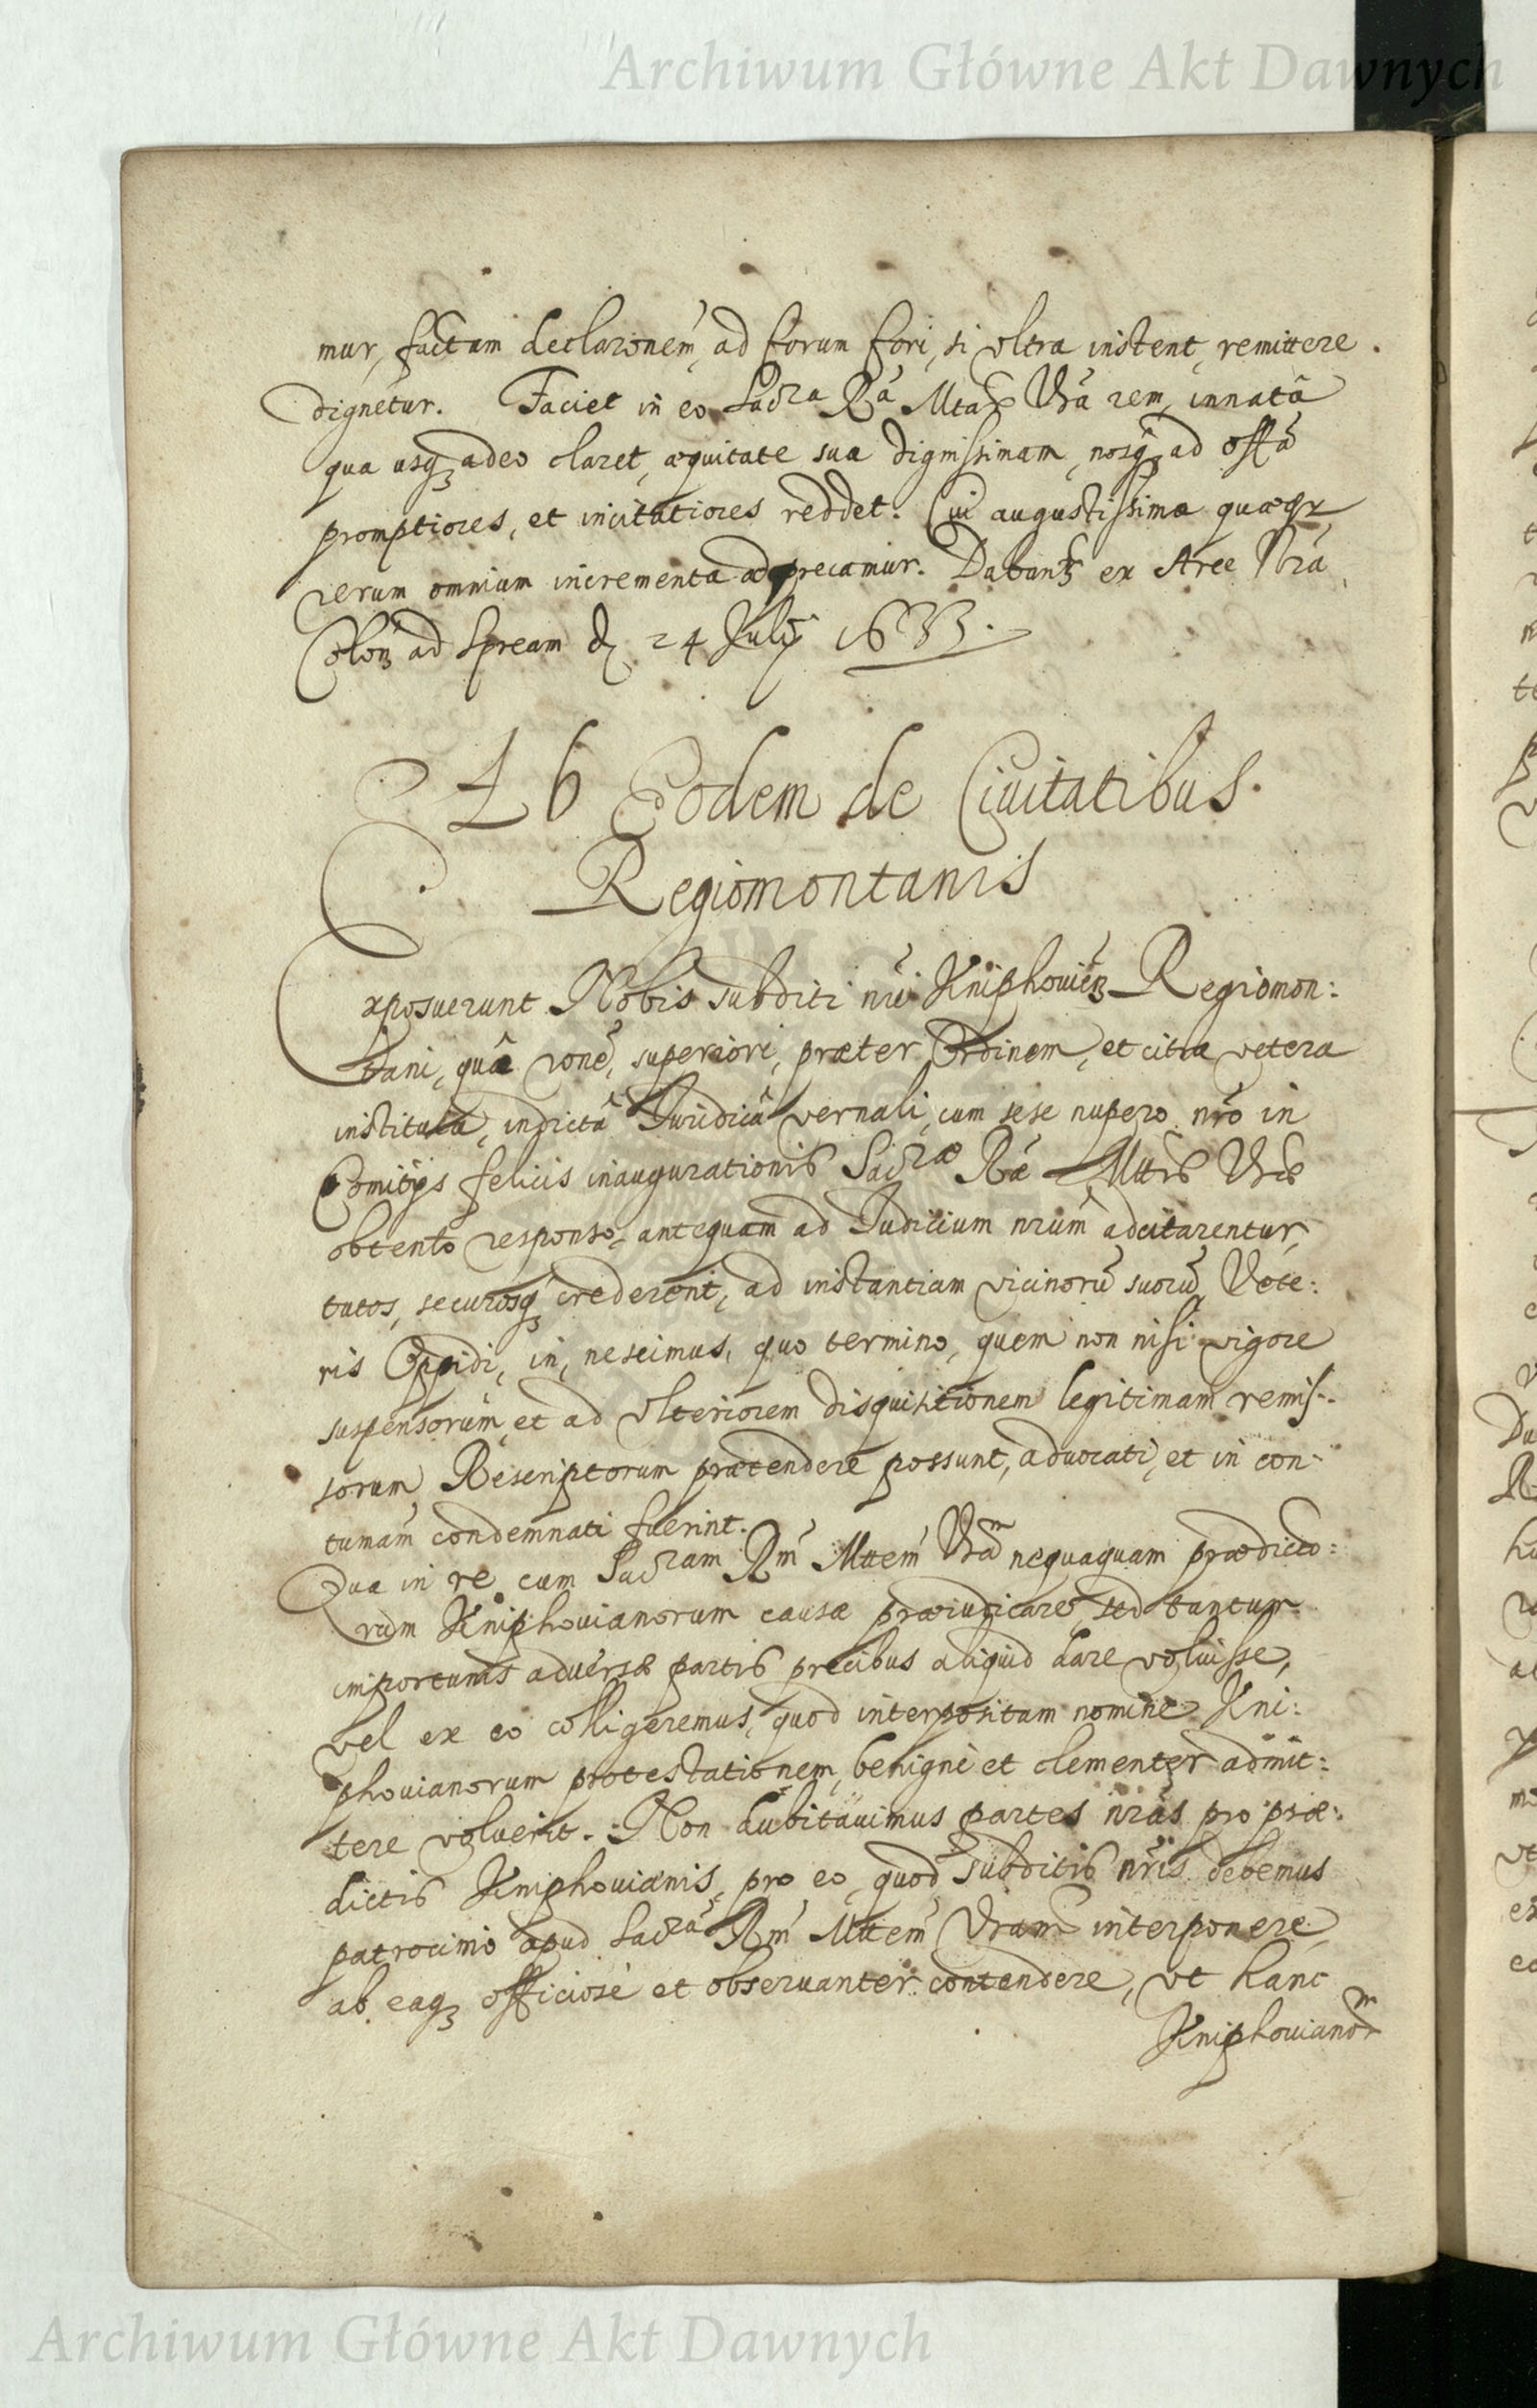 Archiwum Główne Akt Dawnych
mur, factam declaronem, ad forum fori, si vltra instent, remittere
dignetur. Faciet in eo Sacra Ra Mtas Vra rem, innatâ
qua usq adeo claret, æquitate sua dignissimam, nosq ad offa
promptiores, et incitatiores reddet. Cui augustissima quæqz
rerum omnium incrementa adprecamur. Dabantz ex Arce Nra
Colonz ad Spream d 24 Julij 1633.
46 Eodem de Ciuitatibus
Regiomontanis
Exposuerunt Nobis subditi nri Kniphouienz Regiomon:
tani, quâ rone, superiori, præter Ordinem, et citra vetera
instituta, indictâ Juridicâ vernali, cum sese nupero nro in
Comitijs felicis inaugurationis Sacræ Ræ Mttis Vræ
obtento responso, antequam ad Judicium nrum adcitarentur,
tutos, securosq crederent, ad instantiam vicinoru suoru Vete:
ris Oppidi, in, nescimus, quo termino, quem non nisi vigore
suspensorum, et ad vlteriorem disquisitionem legitimam remis-
sorum, Rescriptorum prætendere possunt, aduocati, et in con-
tumam condemnati fuerint.
Qua in re cum Sacram Rm Mttem Vram nequaquam prædicto:
rum Kniphouianorum causæ præiudicare, sed tantum
importunis aduersæ partis precibus aliquid dare voluisse,
vel ex eo colligeremus, quod interpositam nomine Kni:
phouianorum protestationem, benignè et clementer admit:
tere voluerit. Non dubitauimus partes nras pro præ:
dictis Kniphouianis, pro eo, quod subditis nris debemus
patrocinio apud Sacra Rm Mttem Vram interponere,
ab eaq officiosè et obseruanter contendere, vt hanc
Kniphouianorm
Archiwum Główne Akt Dawnych